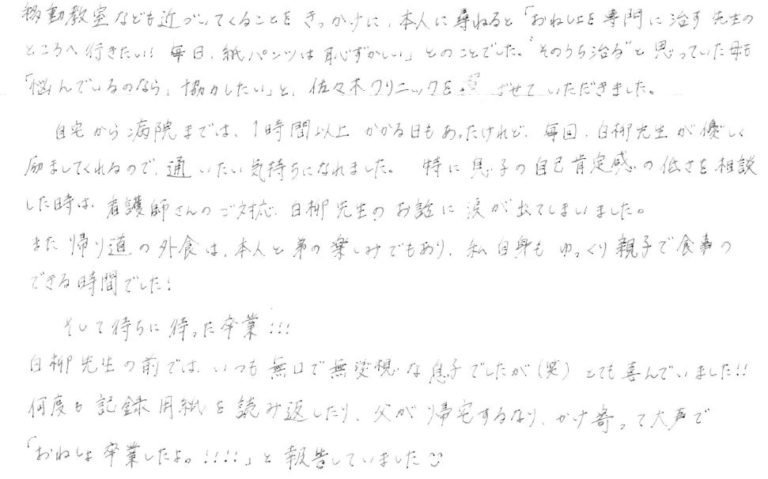 移動教室なども近づいてくることをきっかけに、本人に尋ねると「おねしょを専門に治す先生の
ところへ行きたい! 毎日、紙パンツは恥ずかしい」とのことでした。"そのうち治る"と思っていた母も
「悩んでいるのなら、協力したい」と、佐々木クリニックを させていただきました。
自宅から病院までは、1時間以上かかる日もあったけれど、毎回、白柳先生が優しく
励ましてくれるので、通いたい気持ちになれました。 特に息子の自己肯定感の低さを相談
した時は、看護師さんのご対応、白柳先生のお話に涙が出てしまいました。
また帰り道の外食は、本人と弟の楽しみでもあり、私自身もゆっくり親子で食事の
できる時間でした!
そして待ちに待った卒業!!!
白柳先生の前では、いつも無口で無愛想な息子でしたが(笑)とても喜んでいました!!
何度も記録用紙を読み返したり、父が帰宅するなり、かけ寄って大声で
「おねしょ卒業したよ。!!!!」と報告していました